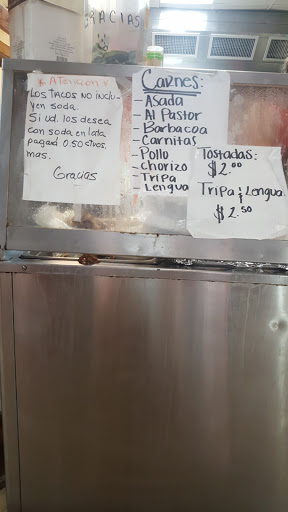 GRACIAS
* Atencion *
Los TACOS NO inclu-
yen soda.
Si ud. los desea
con soda en lata
pagará 0.50 ctvos.
mas.
Gracias
Carnes:
- Asada
- Al Pastor
- Barbacoa
- Carnitas
- Pollo
- Chorizo
- Tripa
- Lengua
Tostadas:
$2.00
Tripa y Lengua
$2.50